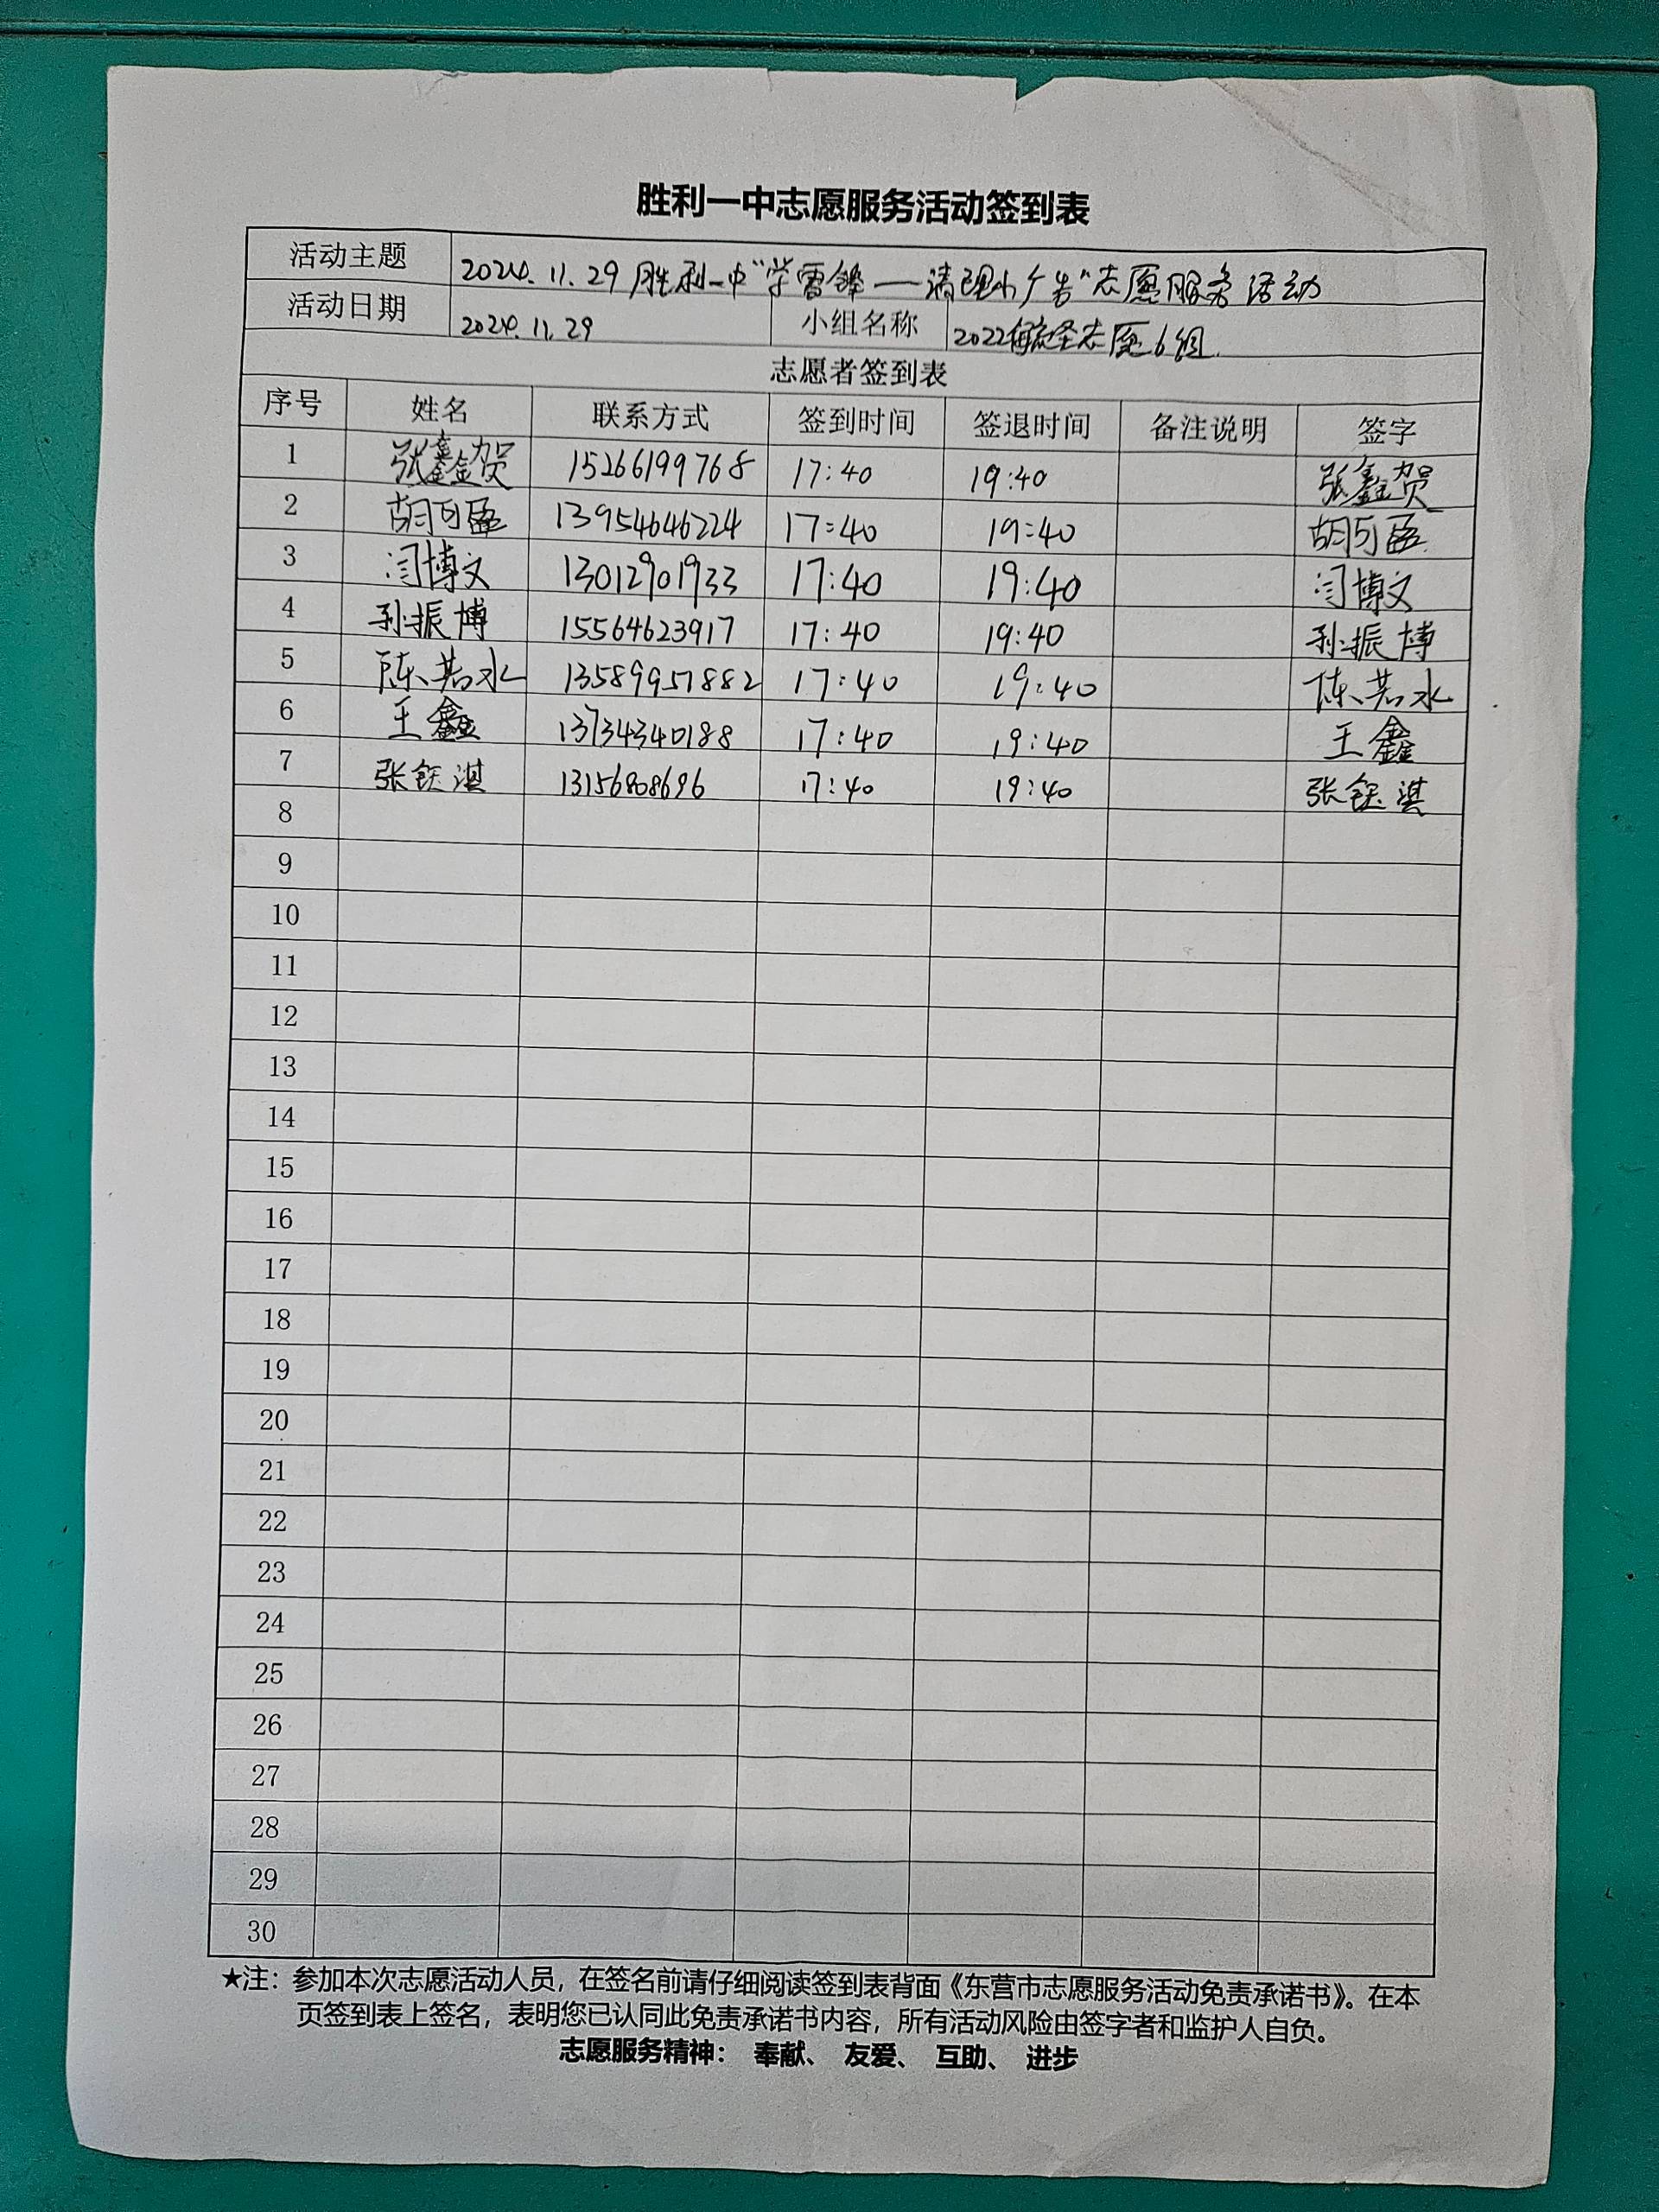 胜利一中志愿服务活动签到表
活动主题 2024.11.29胜利一中"学雷锋——清理小广告"志愿服务活动
活动日期 2024.11.29 小组名称 2022 志愿6组
志愿者签到表
序号 姓名 联系方式 签到时间 签退时间 备注说明 签字
1 张鑫贺 15266199768 17:40 19:40 张鑫贺
2 13954646224 17:40 19:40
3 闫博文 13012901933 17:40 19:40 闫博文
4 孙振博 15564623917 17:40 19:40 孙振博
5 陈若水 13589957882 17:40 19:40 陈若水
6 王鑫 13734340188 17:40 19:40 王鑫
7 张钰淇 13156808696 17:40 19:40 张钰淇
8
9
10
11
12
13
14
15
16
17
18
19
20
21
22
23
24
25
26
27
28
29
30
★注：参加本次志愿活动人员，在签名前请仔细阅读签到表背面《东营市志愿服务活动免责承诺书》。在本
页签到表上签名，表明您已认同此免责承诺书内容，所有活动风险由签字者和监护人自负。
志愿服务精神： 奉献、 友爱、 互助、 进步